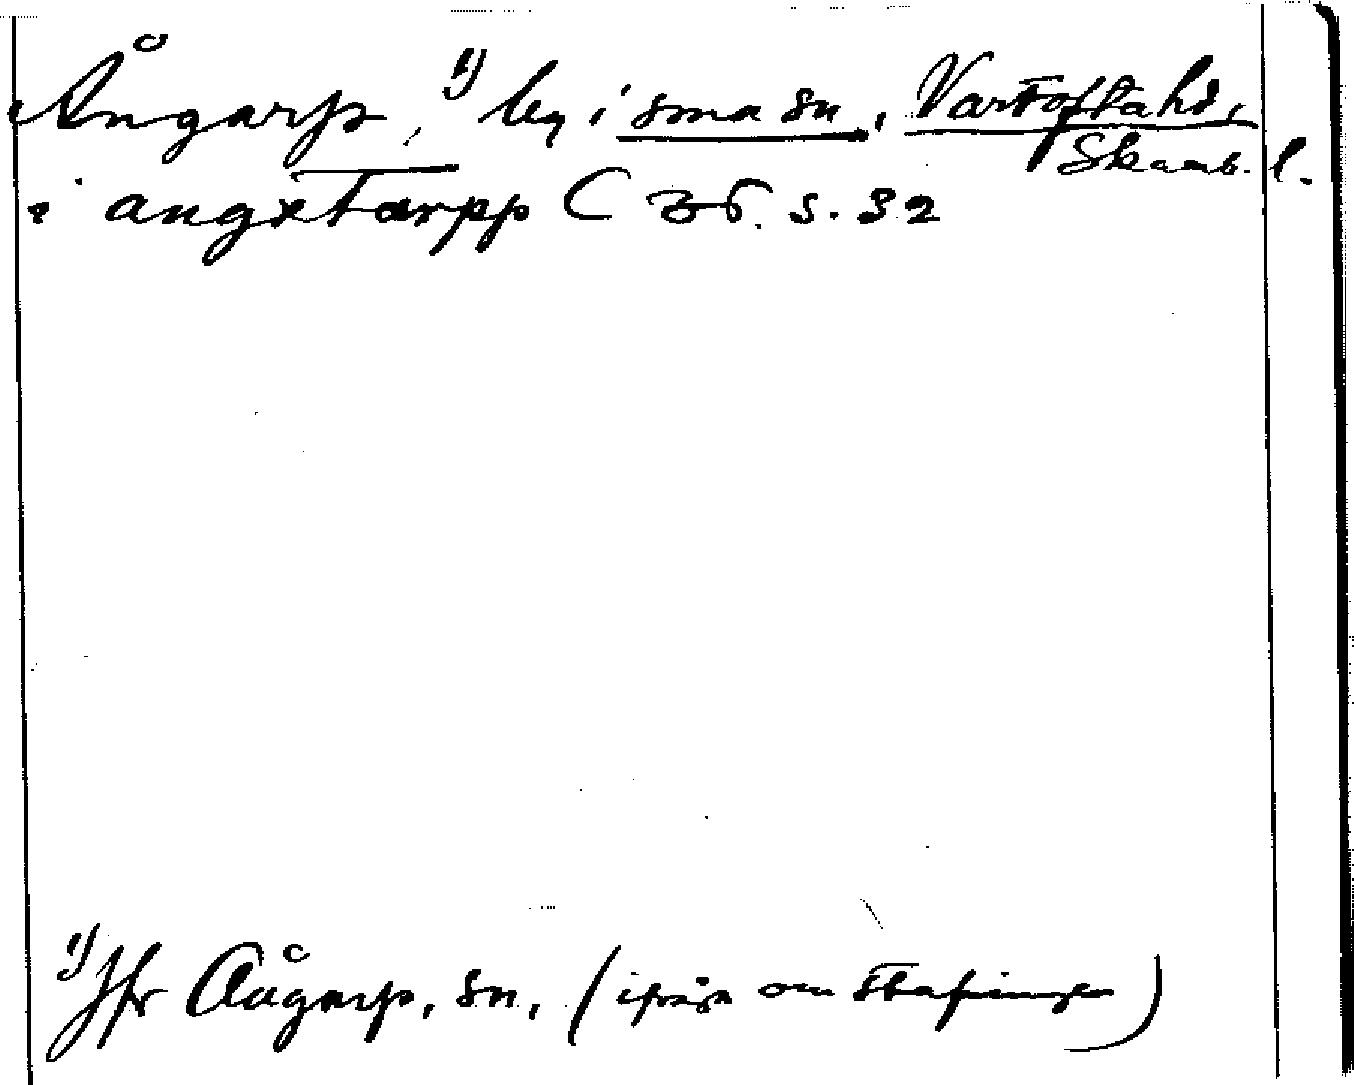 Ångarp, ¹⁾ by i sma sn, Vartoftahd,
Skarab. l.
i angxtarpp C 36. s. 32
¹⁾ Jfr Åugarp, sn, (ifråga om stafningen)